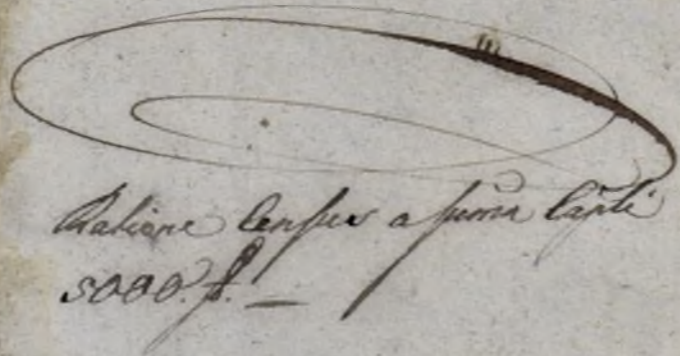 Ratione Census a suma Capli
5000. f. —